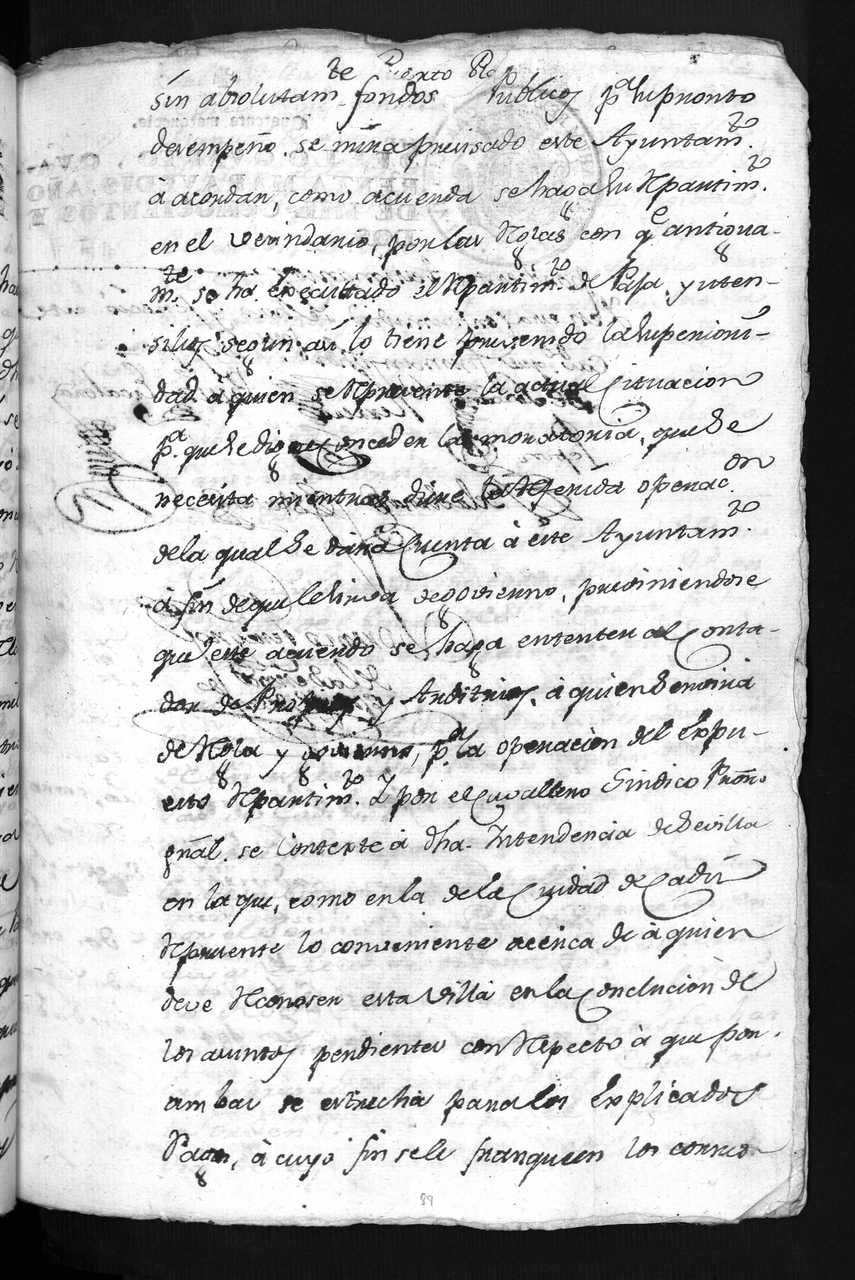 sin absolutam.te fondos Publicos pa su pronto
desempeño. se mira precisado este Ayuntam.to
à acordar, como acuerda se haga su Repartim.to
en el vecindario, por las Reglas con q.e antigua-
m.te se ha executado el Repartim.to de Paja, y uten-
silios segun asi lo tiene prevenido la superiori-
dad à quien se Represente la actual Cituacion
p.a que se digne Conceder la moratoria, que se
necesita mientras dure la Referida operac.on
de la qual se dará Cuenta à este Ayuntam.to
à fin de que le sirva de govierno, previniendose
que este acuerdo se haga entender al Conta-
dor de Propios y Arbitrios, à quien servirá
de Regla y govierno, p.a la operacion del Expu-
esto Repartim.to Y por el Cavallero Sindico Pror.
gral. se Conteste à dha. Intendencia de Sevilla
en la que, como en la de la Ciudad de Cadiz
Represente lo conveniente acerca de à quien
deve Reconoser esta Villa en la Conclucion de
los asuntos pendientes con Respecto à que por
ambas se estrecha para los Explicados
Pagos, à cuyo fin se le franqueen los corres-
89